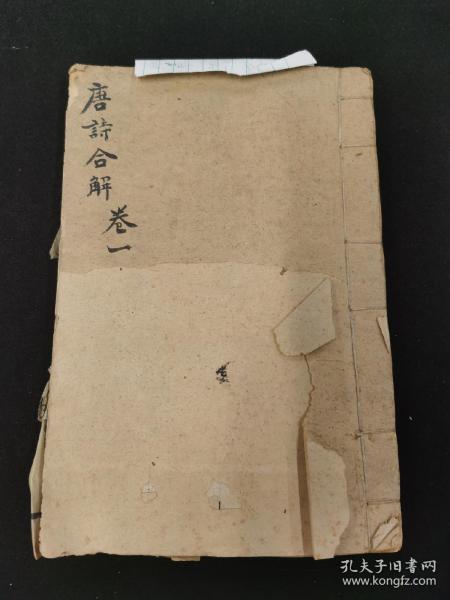 唐詩合解
卷一
孔夫子旧书网
www.kongfz.com